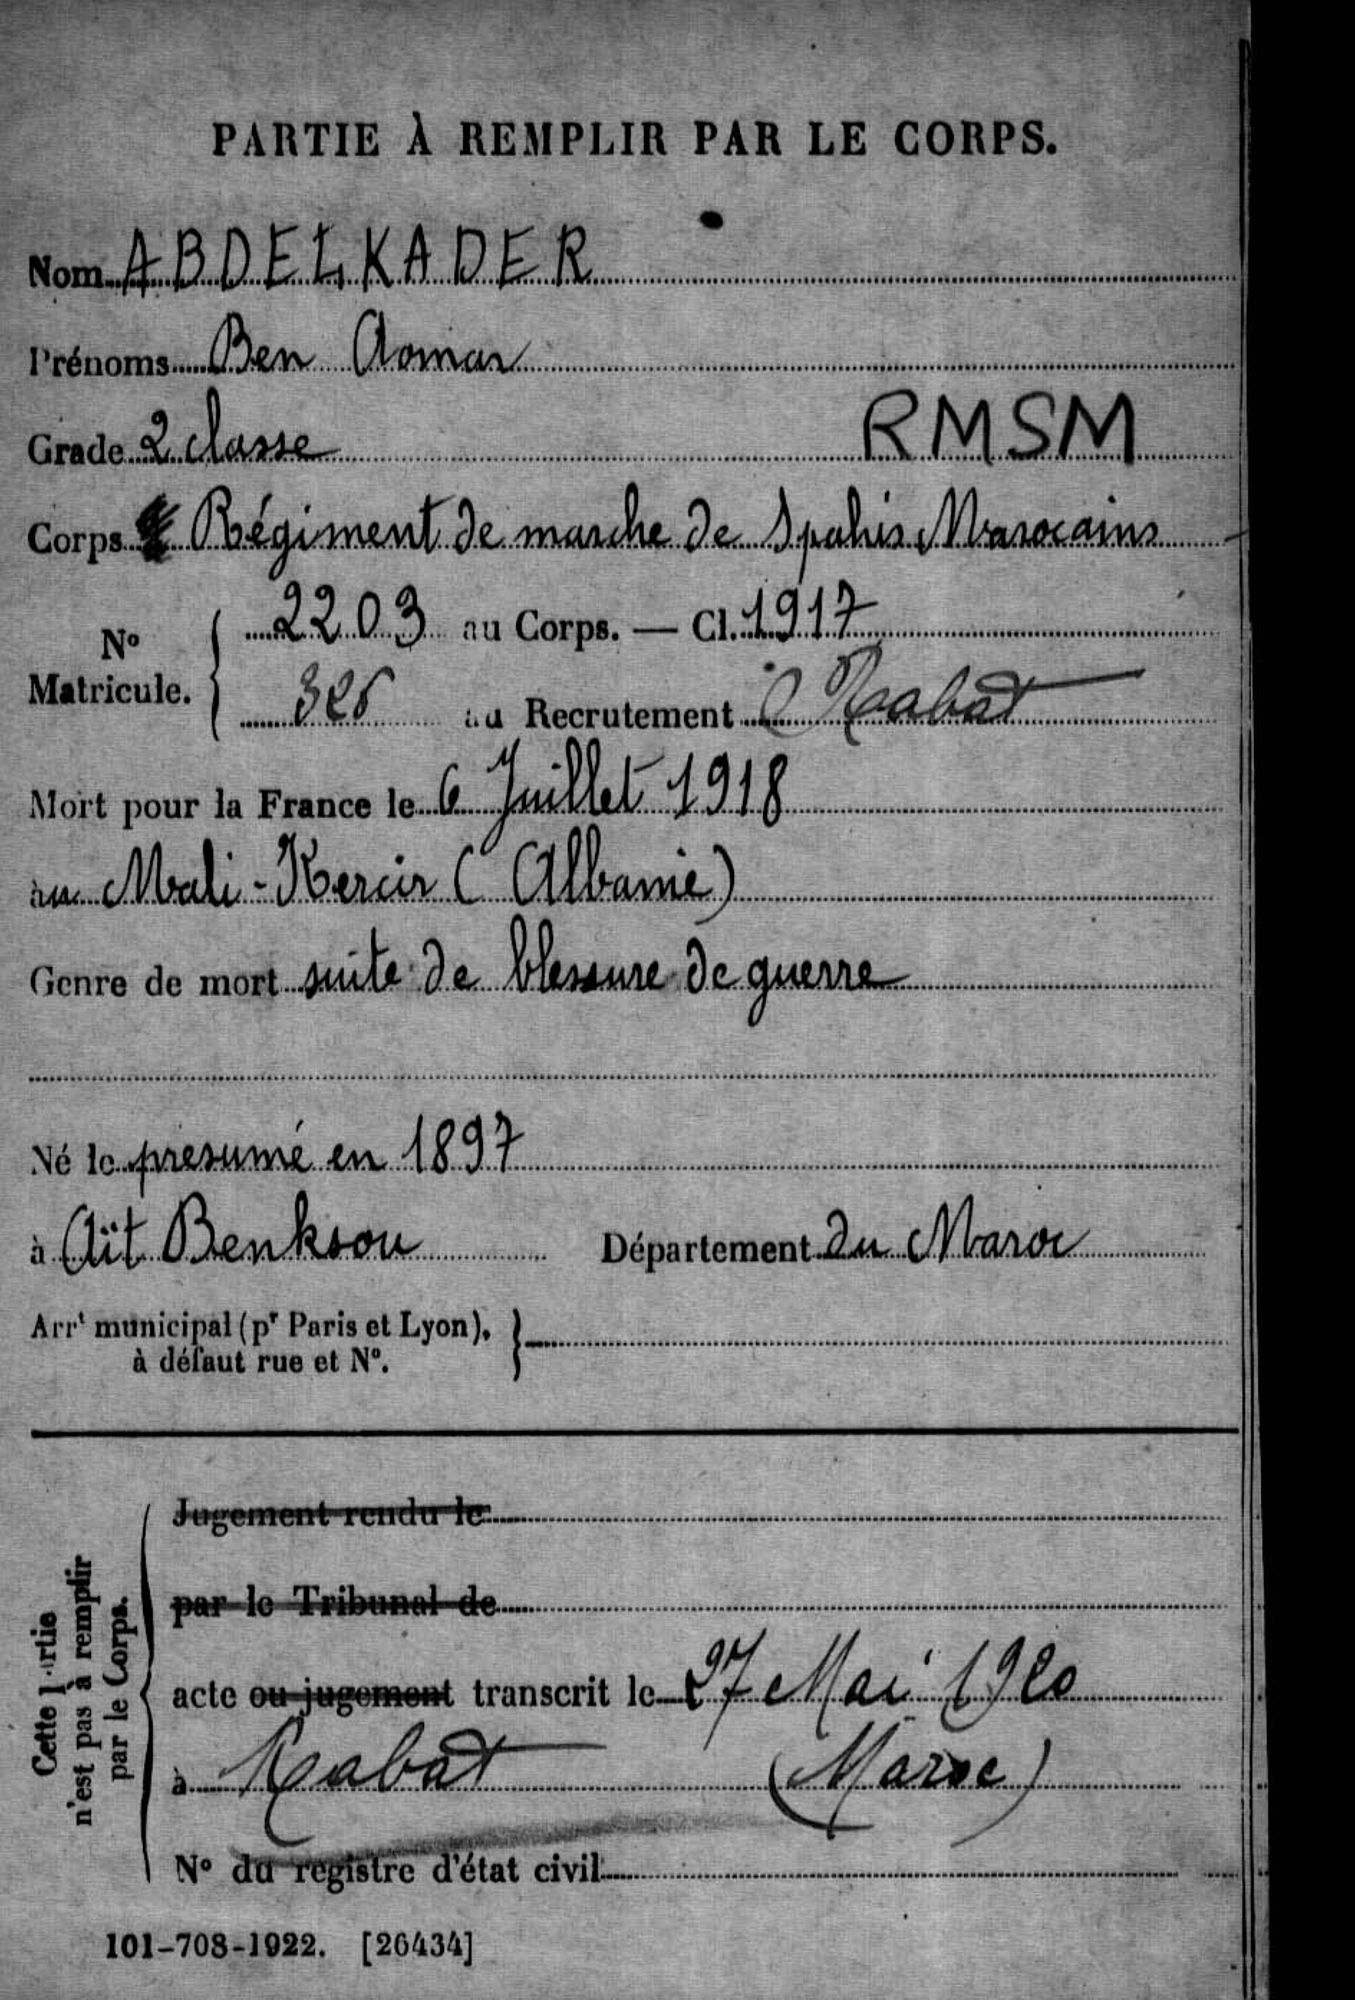 PARTIE À REMPLIR PAR LE CORPS.
Nom ABDELKADER
Prénoms Ben Aomar
Grade 2 classe RMSM
Corps Régiment de marche de Spahis Marocains
N° Matricule. 2203 au Corps. — Cl. 1917
326 au Recrutement Rabat
Mort pour la France le 6 Juillet 1918
au Mali-Kercir (Albanie)
Genre de mort suite de blessure de guerre
Né le presumé en 1897
à Aït Benksou Département du Maroc
Arrt municipal (pr Paris et Lyon),
à défaut rue et N°.
Cette partie
n'est pas à remplir
par le Corps.
Jugement rendu le
par le Tribunal de
acte ou jugement transcrit le 27 Mai 1920
à Rabat (Maroc)
N° du registre d'état civil
101-708-1922. [26434]